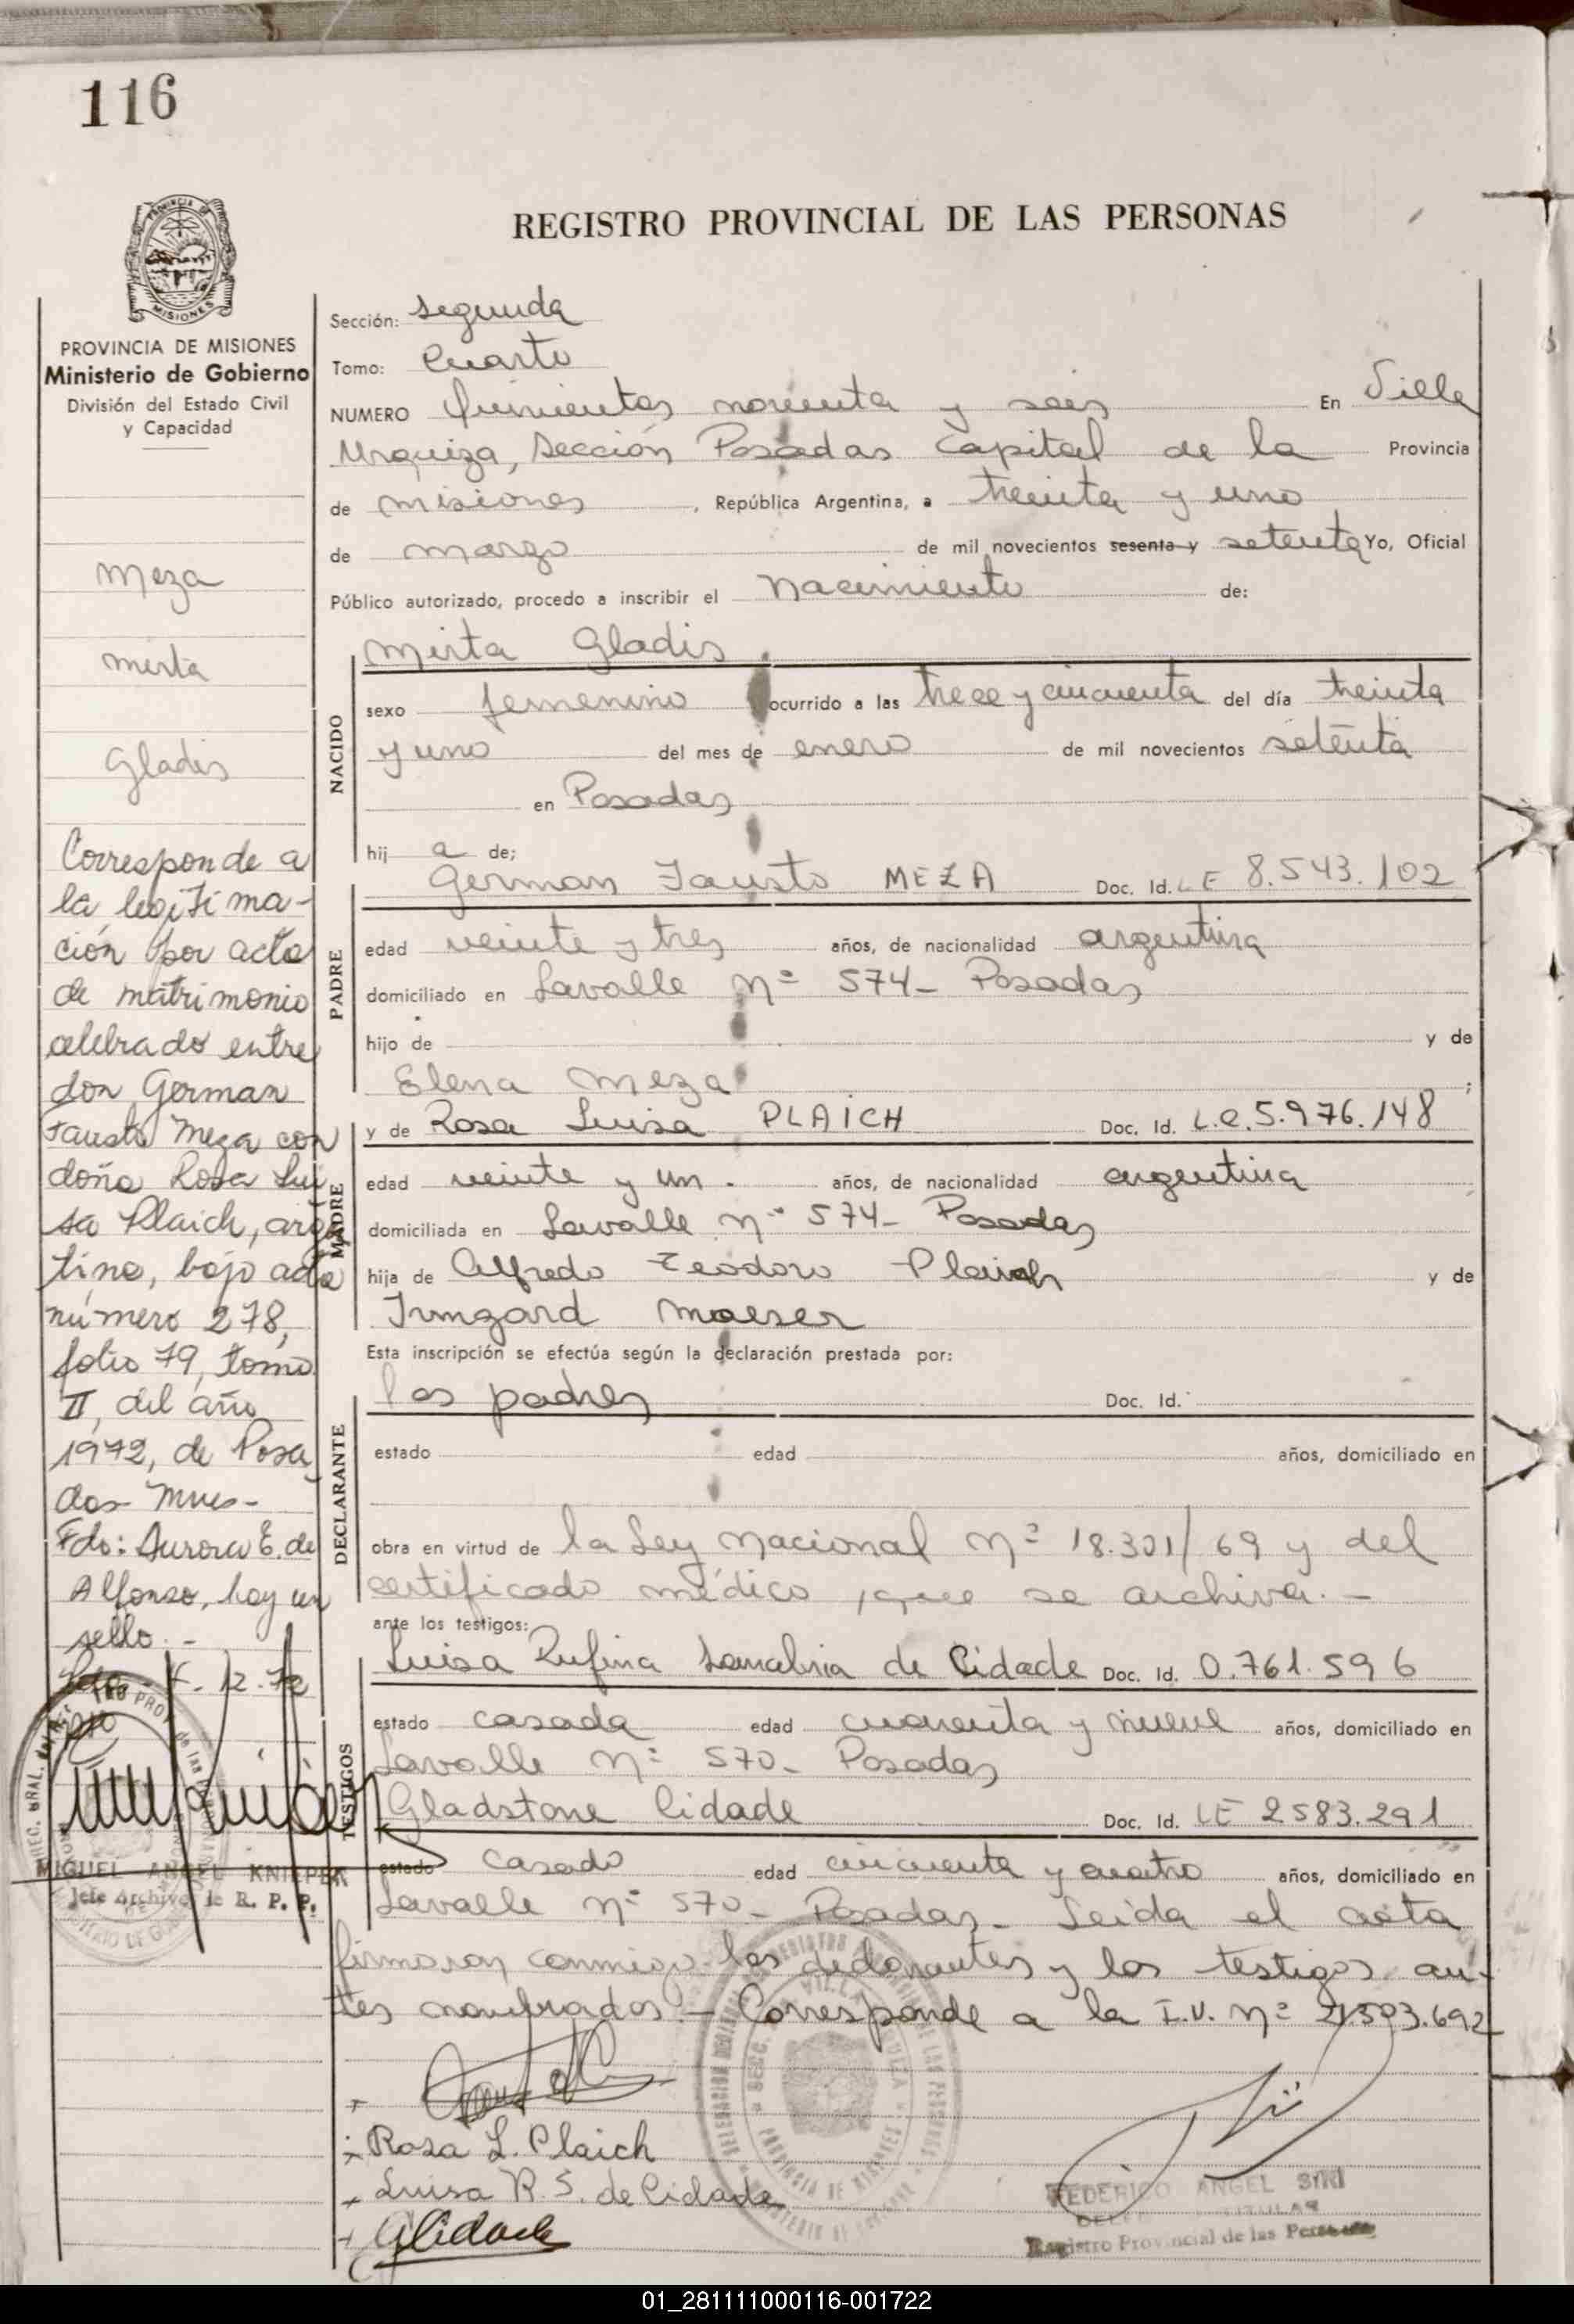 116
REGISTRO PROVINCIAL DE LAS PERSONAS
MISIONES
PROVINCIA DE MISIONES
Ministerio de Gobierno
División del Estado Civil
y Capacidad
Meza
Mirta
Gladis
Corresponde a
la legitima-
ción por acta
de matrimonio
celebrado entre
don German
Fausto Meza con
doña Rosa Lui
sa Plaich, argen
tina, bajo acta
número 278,
folio 79, tomo
II, del año
1972, de Posa
das Mnes-
Fdo: Aurora E. de
Alfonso, hay un
sello.-
4.12.72
MIGUEL ANGEL KNIEPER
Jefe Archivo de R. P. P.
Sección: Segunda
Tomo: Cuarto
NUMERO Quinientos noventa y seis En Villa
Urquiza, Sección Posadas Capital de la Provincia
de Misiones, República Argentina, a treinta y uno
de marzo de mil novecientos sesenta y setenta Yo, Oficial
Público autorizado, procedo a inscribir el Nacimiento de:
NACIDO
Mirta Gladis
sexo femenino ocurrido a las trece y cincuenta del día treinta
y uno del mes de enero de mil novecientos setenta
en Posadas
hij a de;
PADRE
German Fausto MEZA Doc. Id. LE 8.543.102
edad veinte y tres años, de nacionalidad argentina
domiciliado en Lavalle Nº 574- Posadas
hijo de y de
Elena Meza ;
MADRE
y de Rosa Luisa PLAICH Doc. Id. L.C. 5.976.148
edad veinte y un. años, de nacionalidad argentina
domiciliada en Lavalle Nº 574- Posadas
hija de Alfredo Teodoro Plaich y de
Irmgard Maeser
Esta inscripción se efectúa según la declaración prestada por:
DECLARANTE
los padres Doc. Id.
estado edad años, domiciliado en
obra en virtud de la Ley Nacional Nº 18.301/69 y del
certificado médico, que se archiva.-
ante los testigos:
TESTIGOS
Luisa Rufina Sanabria de Cidade Doc. Id. 0.761.596
estado casada edad cuarenta y nueve años, domiciliado en
Lavalle Nº 570- Posadas
Gladstone Cidade Doc. Id. LE 2583.291
estado casado edad cincuenta y cuatro años, domiciliado en
Lavalle Nº 570- Posadas- Leída el acta
firmaron conmigo los declarantes y los testigos an-
tes nombrados.- Corresponde a la I.V. Nº 21.503.692
Rosa L. Plaich
Luisa R. S. de Cidade
GCidade
FEDERICO ANGEL SIRI
TITULAR
Registro Provincial de las Personas
01_281111000116-001722